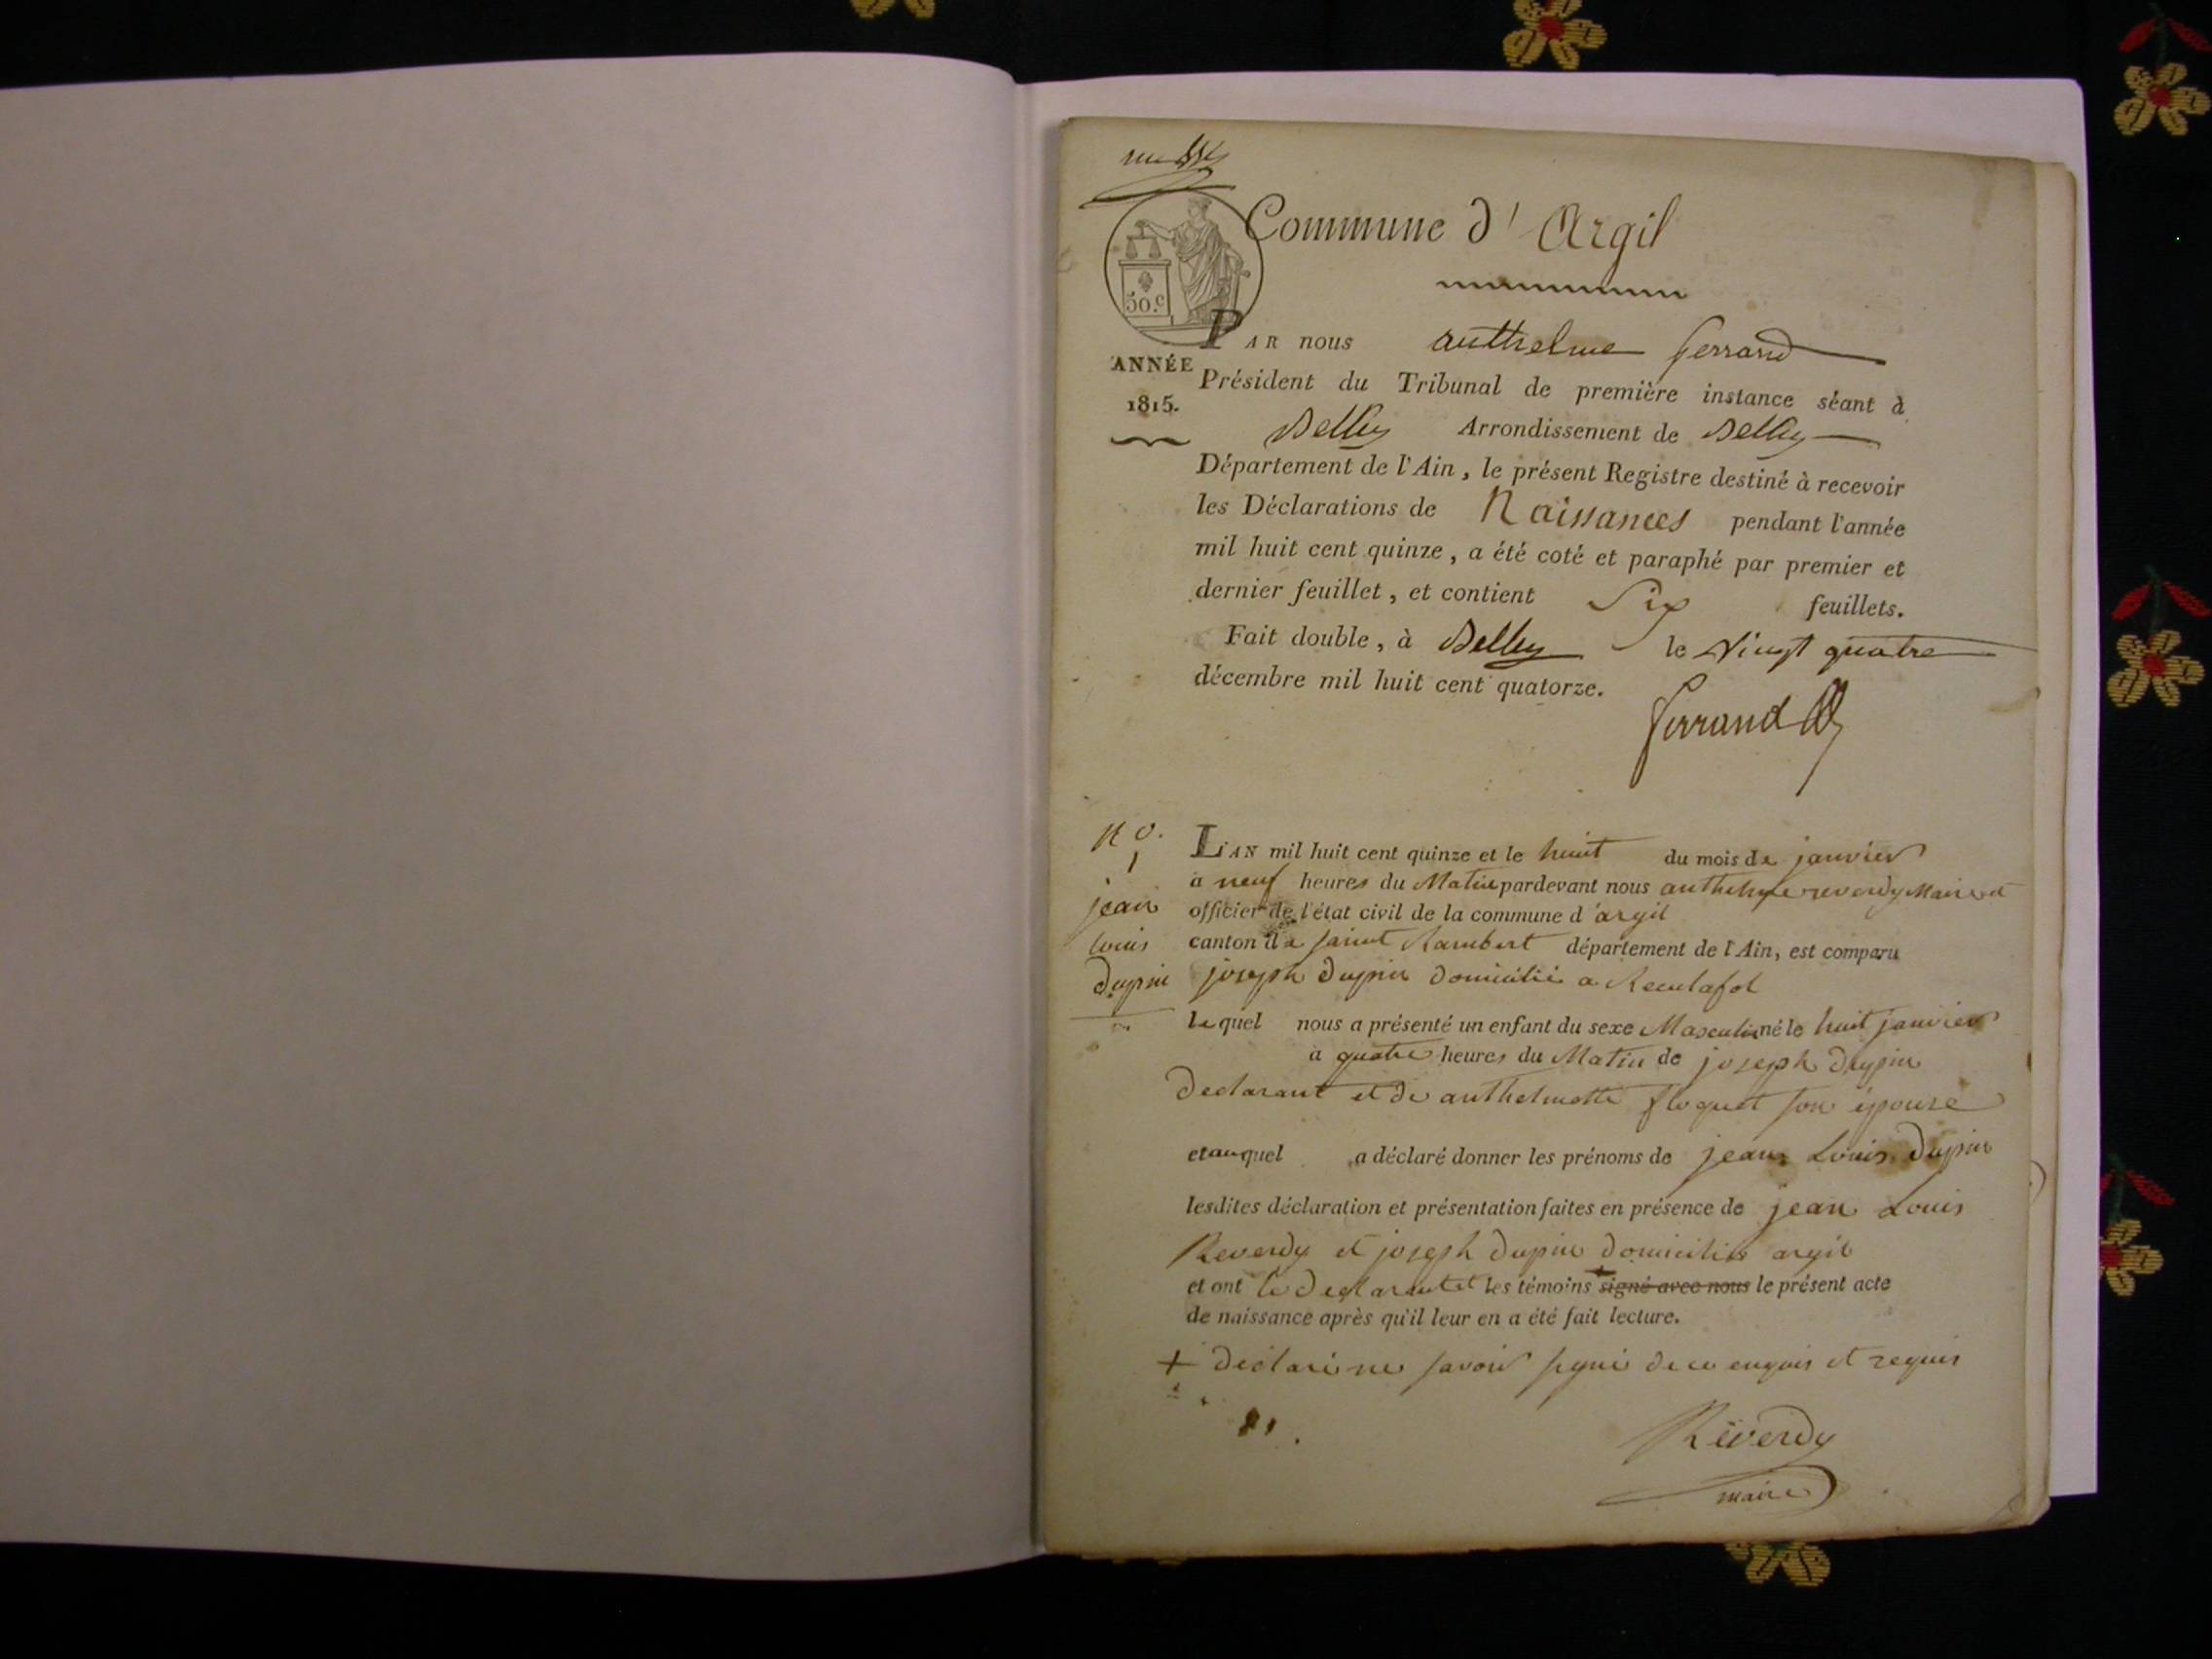 Commune d' Argil
50.c
PAR nous anthelme ferrand
ANNÉE
1815.
Président du Tribunal de première instance séant à
Belley Arrondissement de Belley
Département de l'Ain, le présent Registre destiné à recevoir
les Déclarations de Naissances pendant l'année
mil huit cent quinze, a été coté et paraphé par premier et
dernier feuillet, et contient Six feuillets.
Fait double, à Belley le vingt quatre
décembre mil huit cent quatorze.
ferrand
N o.
1
jean
louis
dupin
L'AN mil huit cent quinze et le huit du mois de janvier
a neuf heures du Matin pardevant nous anthelme reverdy Maire et
officier de l'état civil de la commune d'argil
canton de saint Rambert département de l'Ain, est comparu
joseph dupin domicilié a Reculafol
lequel nous a présenté un enfant du sexe Masculin né le huit janvier
a quatre heures du Matin de joseph dupin
declarant et de anthelmette floquet son épouse
et auquel a déclaré donner les prénoms de jean Louis dupin
lesdites déclaration et présentation faites en présence de jean Louis
Reverdy et joseph dupin domiciliés argil
et ont le declarant et les témoins + signé avec nous le présent acte
de naissance après qu'il leur en a été fait lecture.
+ déclaré ne savoir signé de ce enquis et requis
Reverdy
maire